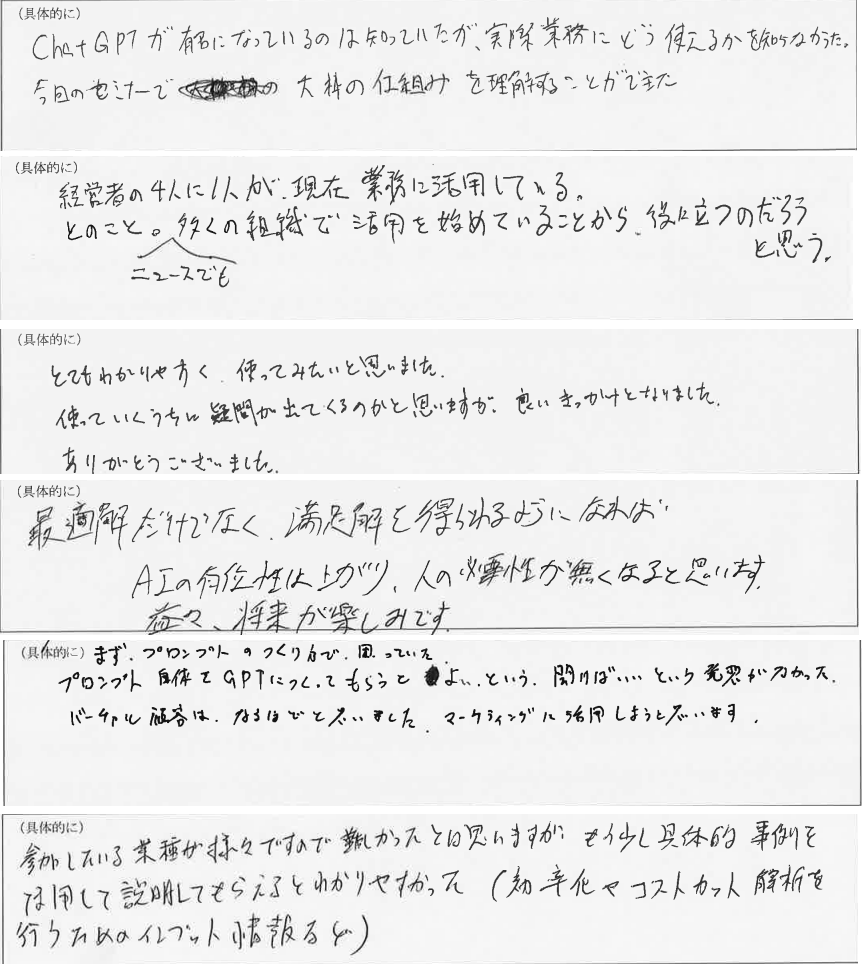 (具体的に)
ChatGPTが有名になっているのは知っていたが、実際業務にどう使えるかを知らなかった。
今回のセミナーで 大枠の仕組みを理解することができた
(具体的に)
経営者の4人に1人が、現在 業務に活用している。
とのこと。多くの組織で活用を始めていることから、役に立つのだろう
と思う。
ニュースでも
(具体的に)
とてもわかりやすく、使ってみたいと思いました。
使っていくうちに疑問が出てくるのかと思いますが、良いきっかけとなりました。
ありがとうございました。
(具体的に)
最適解だけでなく、満足解を得られるようになれば
AIの有位性は上がり、人の必要性が無くなると思います。
益々、将来が楽しみです。
(具体的に) まず、プロンプトのつくり方で、困っていた
プロンプト自体をGPTにつくってもらうとよい、という、聞けばいいという発想がなかった。
バーチャル顧客は、なるほどと思いました。マーケティングに活用しようと思います。
(具体的に)
参加している業種が様々ですので難しかったとは思いますが、もう少し具体的事例を
活用して説明してもらえるとわかりやすかった(効率化やコストカット解析を
行うためのインプット情報